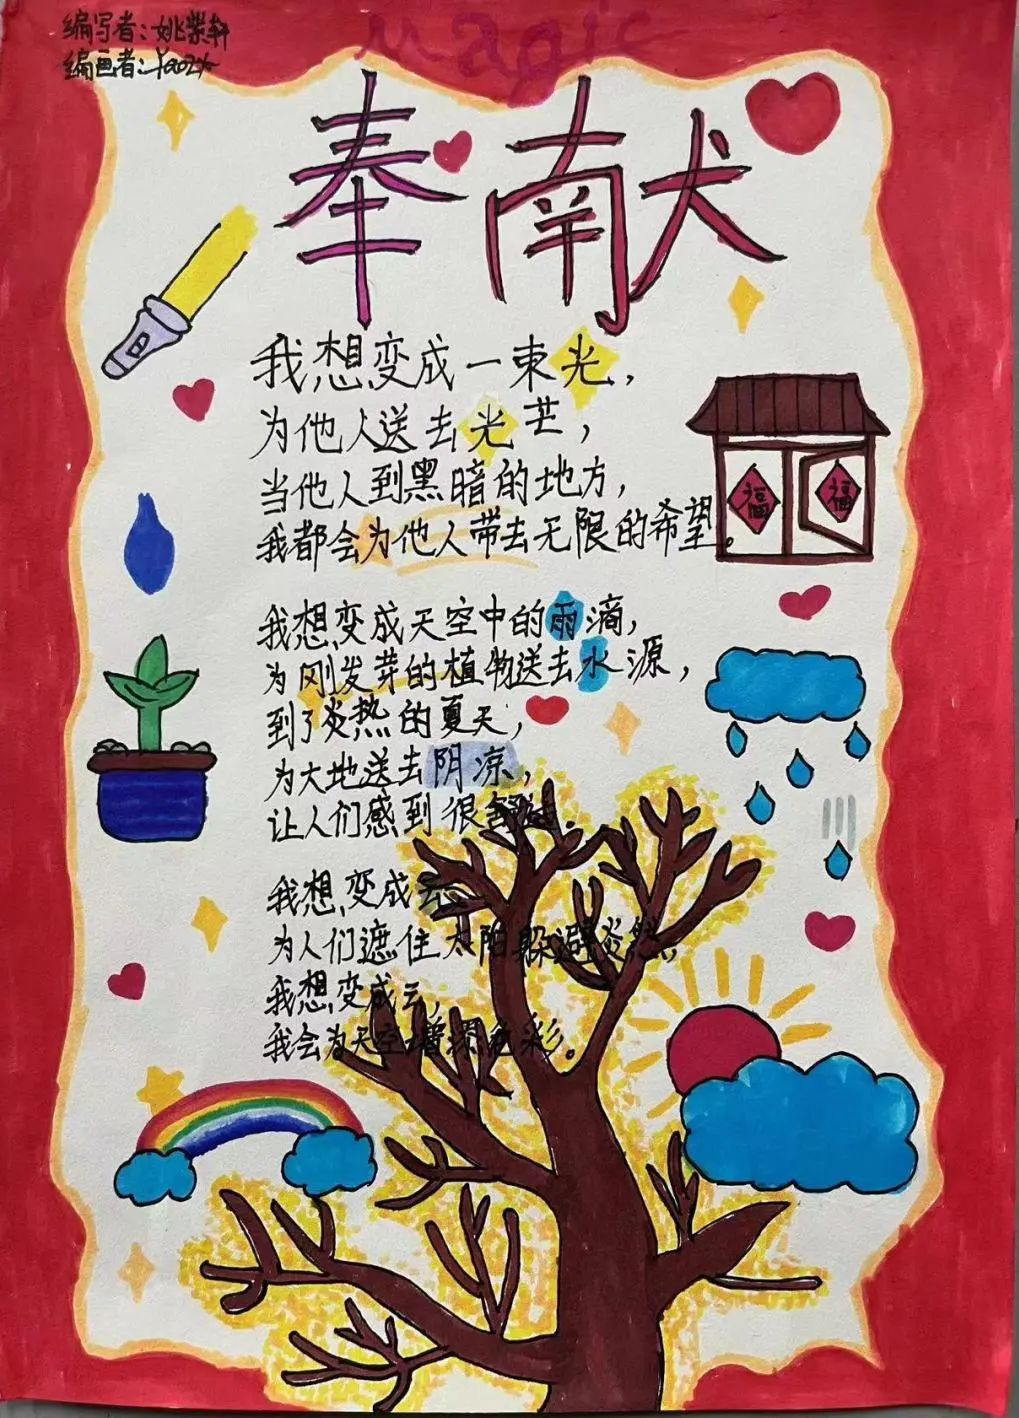 编写者：姚紫轩
编画者：
magic
奉献
我想变成一束光，
为他人送去光芒，
当他人到黑暗的地方，
我都会为他人带去无限的希望。
福 福
我想变成天空中的雨滴，
为刚发芽的植物送去水源，
到了炎热的夏天，
为大地送去阴凉，
让人们感到很舒适。
我想变成云，
为人们遮住太阳躲避炎热，
我想变成云，
我会为天空增添色彩。